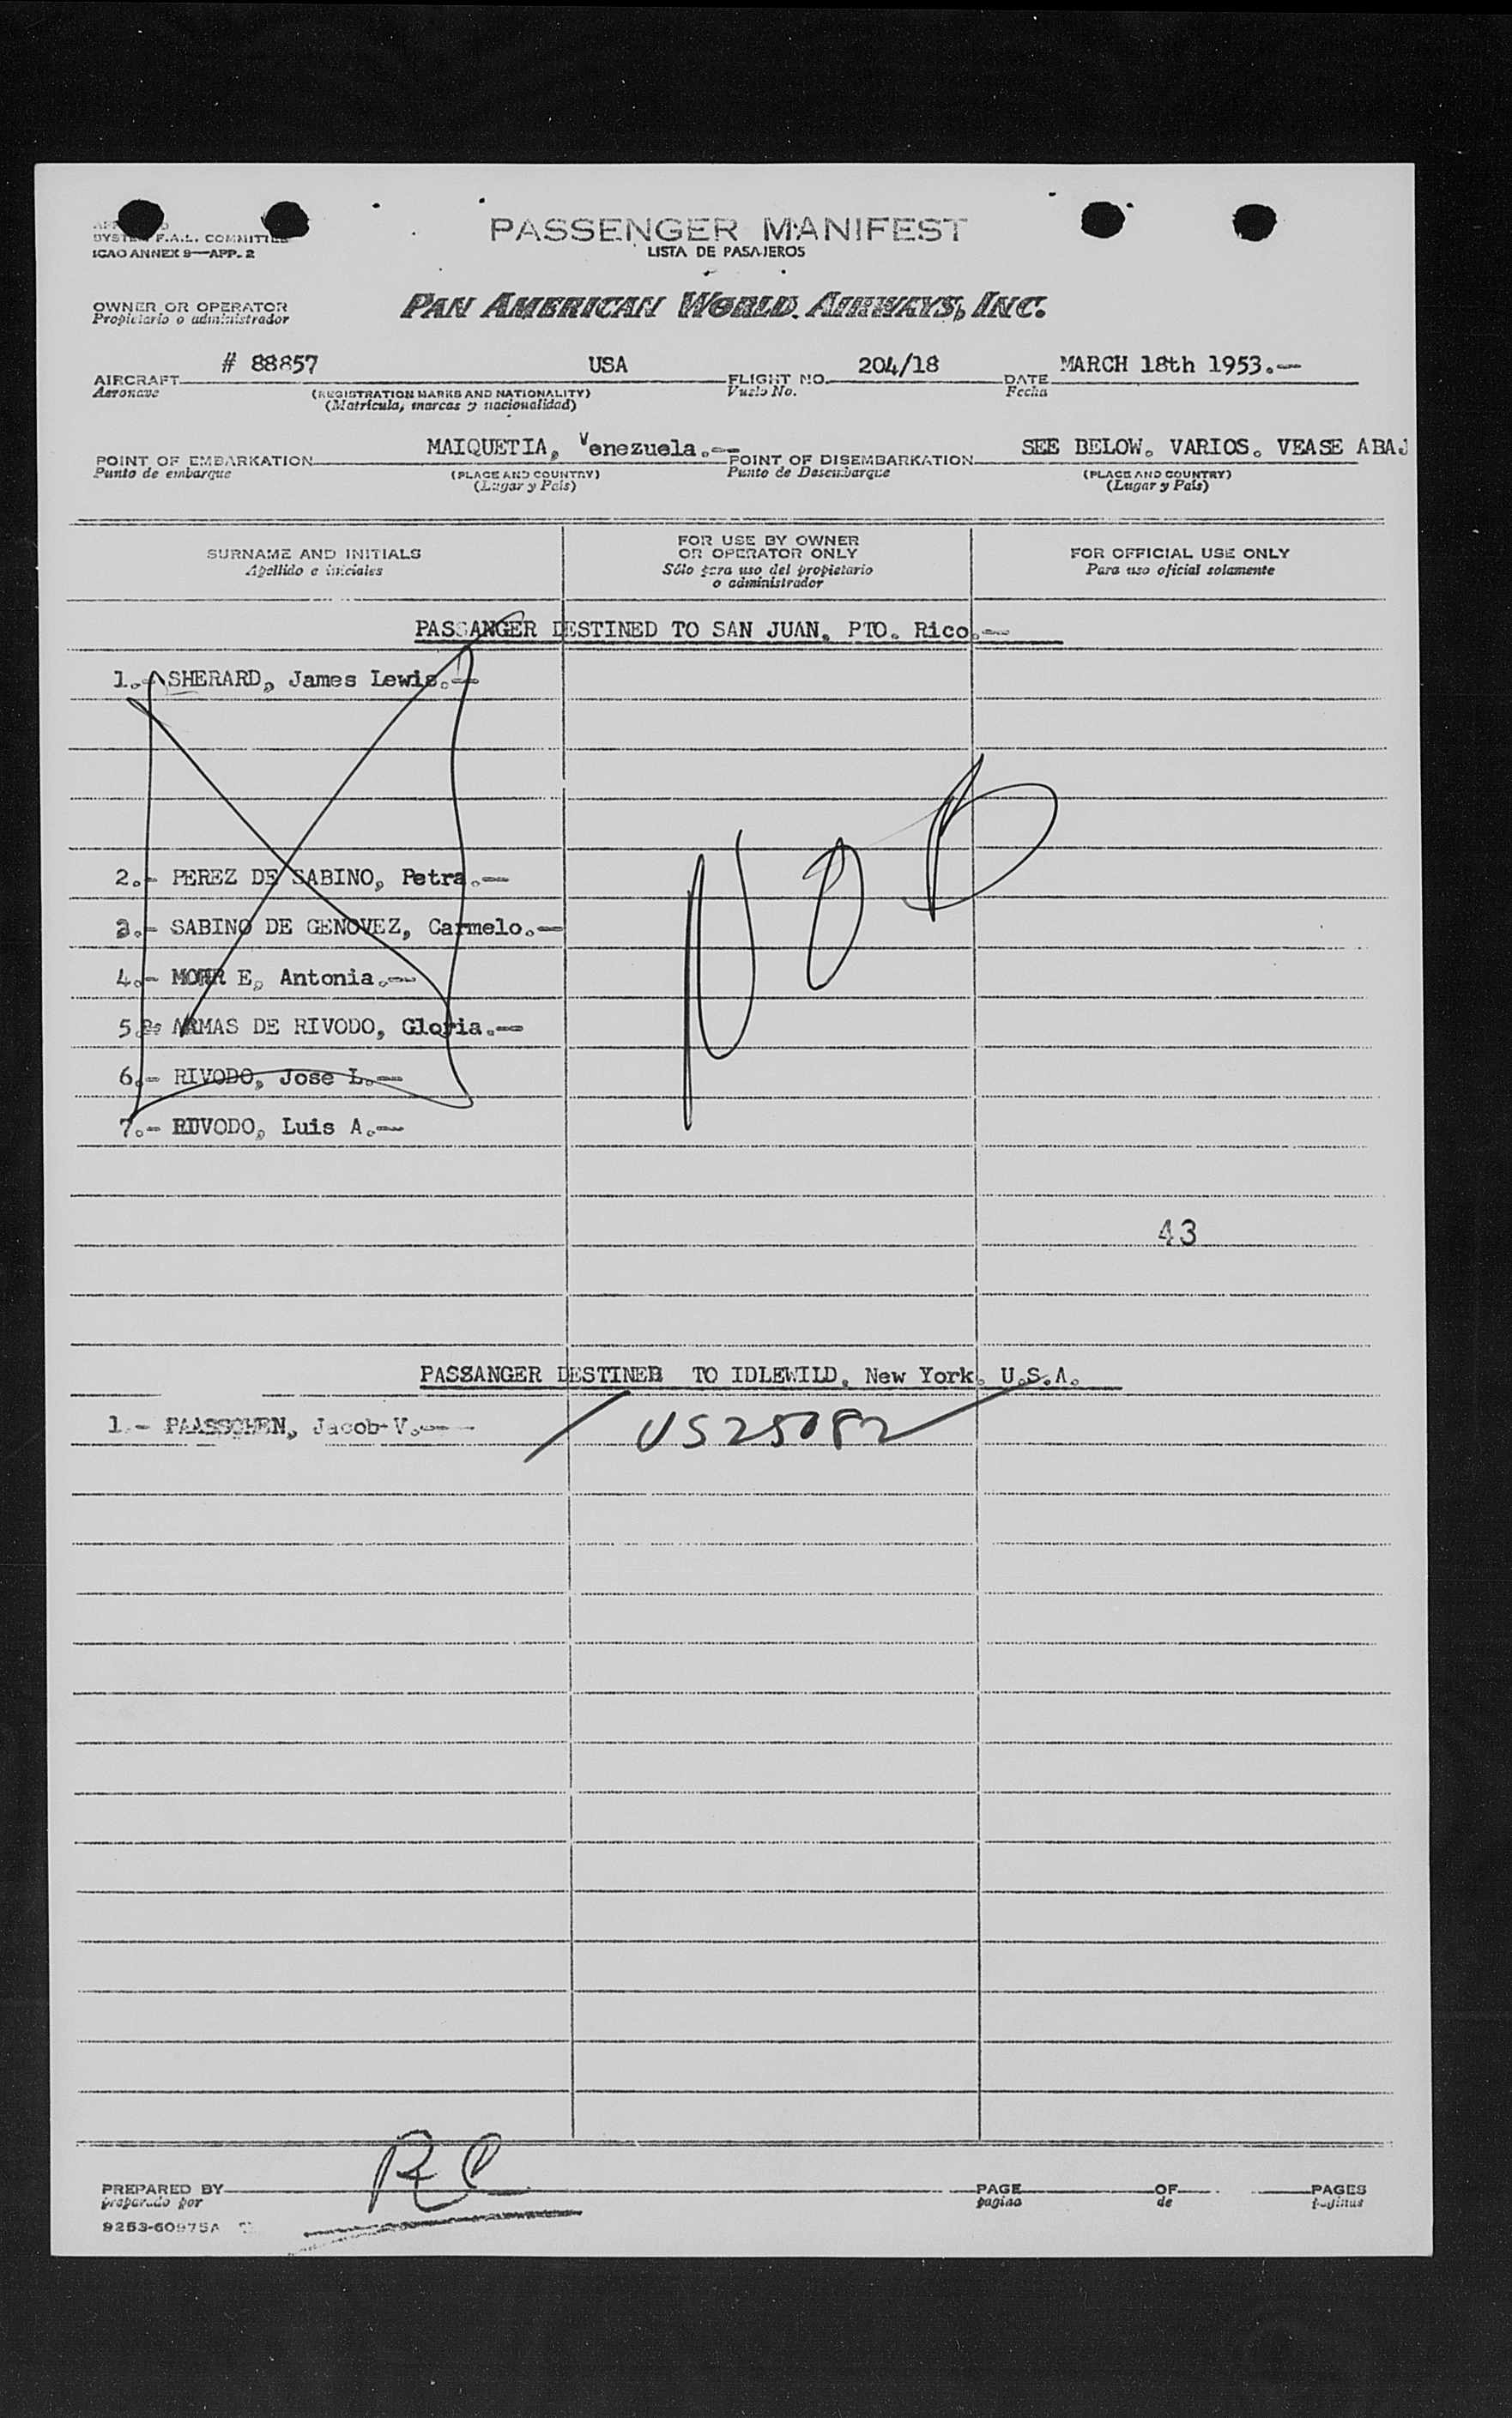 PASSENGER MANIFEST
LISTA DE PASAJEROS
F.A.L. COMMITTEE
ICAO ANNEX 9—APP. 2
OWNER OR OPERATOR PAN AMERICAN WORLD AIRWAYS, INC.
Propietario o administrador
# 88857 USA 204/18 MARCH 18th 1953.-
AIRCRAFT FLIGHT NO. DATE
Aeronave (REGISTRATION MARKS AND NATIONALITY) Vuelo No. Fecha
(Matrícula, marcas y nacionalidad)
MAIQUETIA, Venezuela.- SEE BELOW. VARIOS. VEASE ABAJ
POINT OF EMBARKATION POINT OF DISEMBARKATION
Punto de embarque (PLACE AND COUNTRY) Punto de Desembarque (PLACE AND COUNTRY)
(Lugar y País) (Lugar y País)
SURNAME AND INITIALS
Apellido e iniciales
FOR USE BY OWNER
OR OPERATOR ONLY
Sólo para uso del propietario
o administrador
FOR OFFICIAL USE ONLY
Para uso oficial solamente
PASSANGER DESTINED TO SAN JUAN, PTO. Rico.-
1.- SHERARD, James Lewis.-
2.- PEREZ DE SABINO, Petra.-
3.- SABINO DE GENOVEZ, Carmelo.-
4.- MOHR E, Antonia.-
5.- ARMAS DE RIVODO, Gloria.-
6.- RIVODO, Jose L.-
7.- RIVODO, Luis A.-
43
PASSANGER DESTINED TO IDLEWILD, New York. U.S.A.
1.- PAASSCHEN, Jacob V.-
US25082
RC
PREPARED BY PAGE OF PAGES
preparado por pagina de paginas
9253-60975A